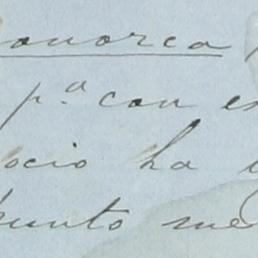 onorca
pª con es
ocio ha
punto me